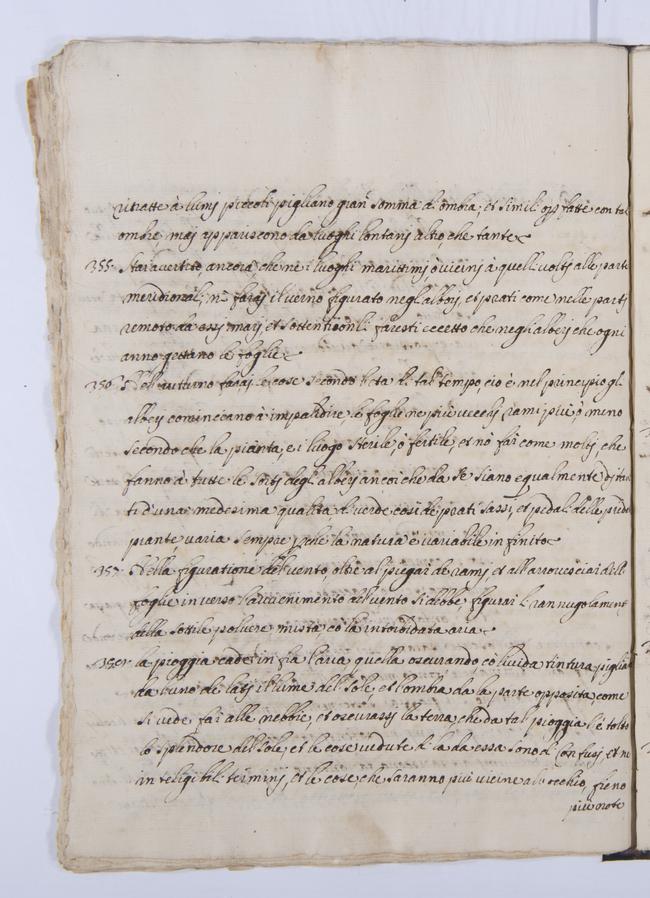 ritratte à lumj piccoli pigliano gran somma d'ombra, et simili opp. fatte con tal
ombre maj appariscono da luoghi lontanj altro, che tante
355 Starà vertito, ancora, che ne i luoghi marittimj ò vicinj à quelli voltj alle parte
meridional, nõ faraj il verno figurato negl'alberj, et prati come nelle partj
remote da essj marj, et settentrionli faresti eccetto che negl'alberj che ogni
anno gettano le foglie
356 Nell'autuno faraj le cose secondo l'età di tal tempo, cio è nel principio gl
alberj cominceano à impalidire, le foglie ne più vecchj ramj più, ò meno
secondo che la pianta, e i luogo sterile, ò fertile, et nõ far come moltj, che
fanno à tutte le sortj degl'alberj ancoi che da se siano equalmente distan
ti d'una medesima qualità di verde così de prati sassj, et pedali delle prãde
piante, varia sempre perche la natura è variabile in finito
357 Nella figuratione del vento, oltre al piegar de ramj et all'arrovesciar dell
foglie inverso l'avvenimento del vento si debbe figurar l rannugolament
della sottile polvere mista cõ la intorbidata aria
358 la pioggia cade in fra l'aria quella oscurando, cõ livida tintura, piglian
da l'uno de latj il lume del sole, et l'ombra da la parte opposita, come
si vede far alle nebbie, et oscurassj la terra, che da tal pioggia l'è tolto
lo splendore del sole, et le cose vedute di la da essa sono di confusj, et ne
in teligibili terminj, et le cose, che saranno più vicine al'occhio, fieno
più note